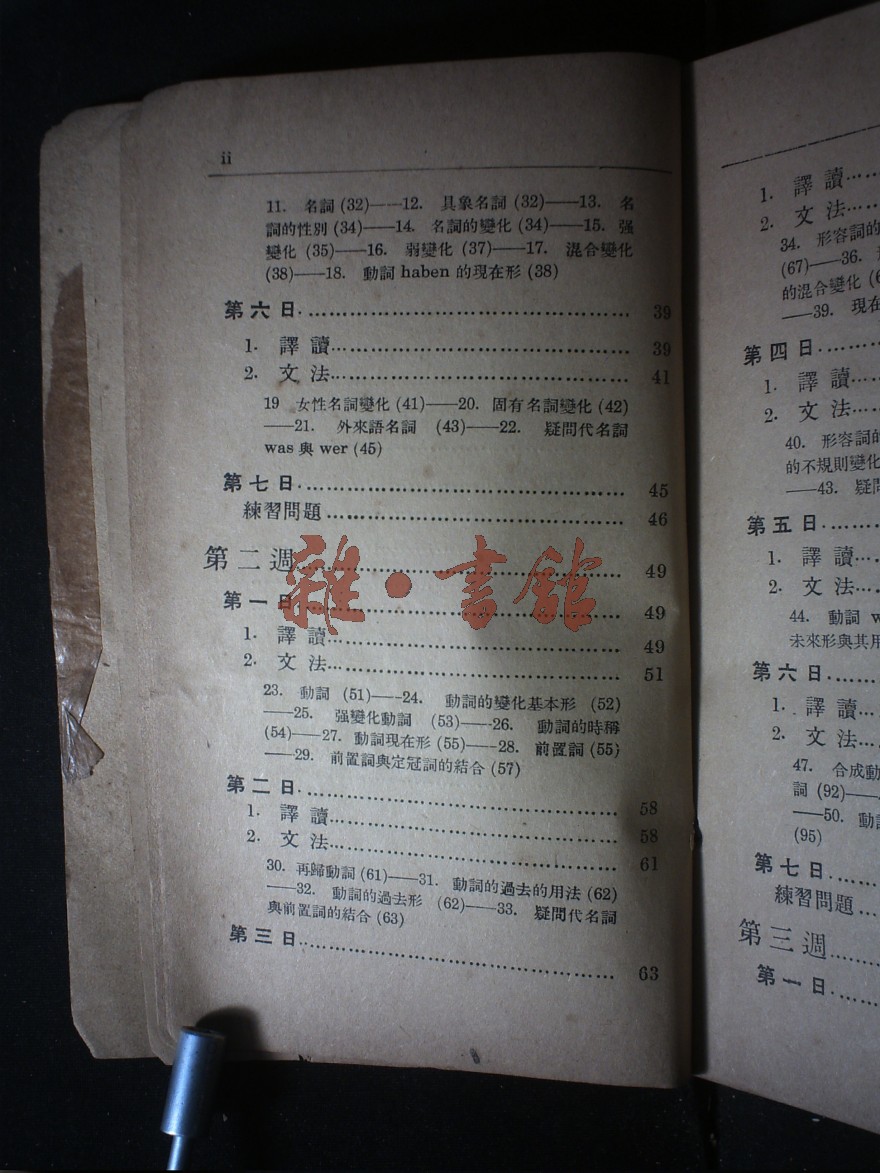 ii
11. 名詞 (32)——12. 具象名詞 (32)——13. 名
詞的性別 (34)——14. 名詞的變化 (34)——15. 强
變化 (35)——16. 弱變化 (37)——17. 混合變化
(38)——18. 動詞 haben 的現在形 (38)
第六日 39
1. 譯讀 39
2. 文法 41
19 女性名詞變化 (41)——20. 固有名詞變化 (42)
——21. 外來語名詞 (43)——22. 疑問代名詞
was 與 wer (45)
第七日 45
練習問題 46
第二週 49
第一日 49
1. 譯讀 49
2. 文法 51
23. 動詞 (51)——24. 動詞的變化基本形 (52)
——25. 强變化動詞 (53)——26. 動詞的時稱
(54)——27. 動詞現在形 (55)——28. 前置詞 (55)
——29. 前置詞與定冠詞的結合 (57)
第二日 58
1. 譯讀 58
2. 文法 61
30. 再歸動詞 (61)——31. 動詞的過去的用法 (62)
——32. 動詞的過去形 (62)——33. 疑問代名詞
與前置詞的結合 (63)
第三日 63
雜·書館
1. 譯讀
2. 文法
34. 形容詞的
(67)——36.
的混合變化
——39. 現在
第四日
1. 譯讀
2. 文法
40. 形容詞的
的不規則變化
——43. 疑問
第五日
1. 譯讀
2. 文法
44. 動詞
未來形與其用
第六日
1. 譯讀
2. 文法
47. 合成動
詞 (92)
——50. 動詞
(95)
第七日
練習問題
第三週
第一日